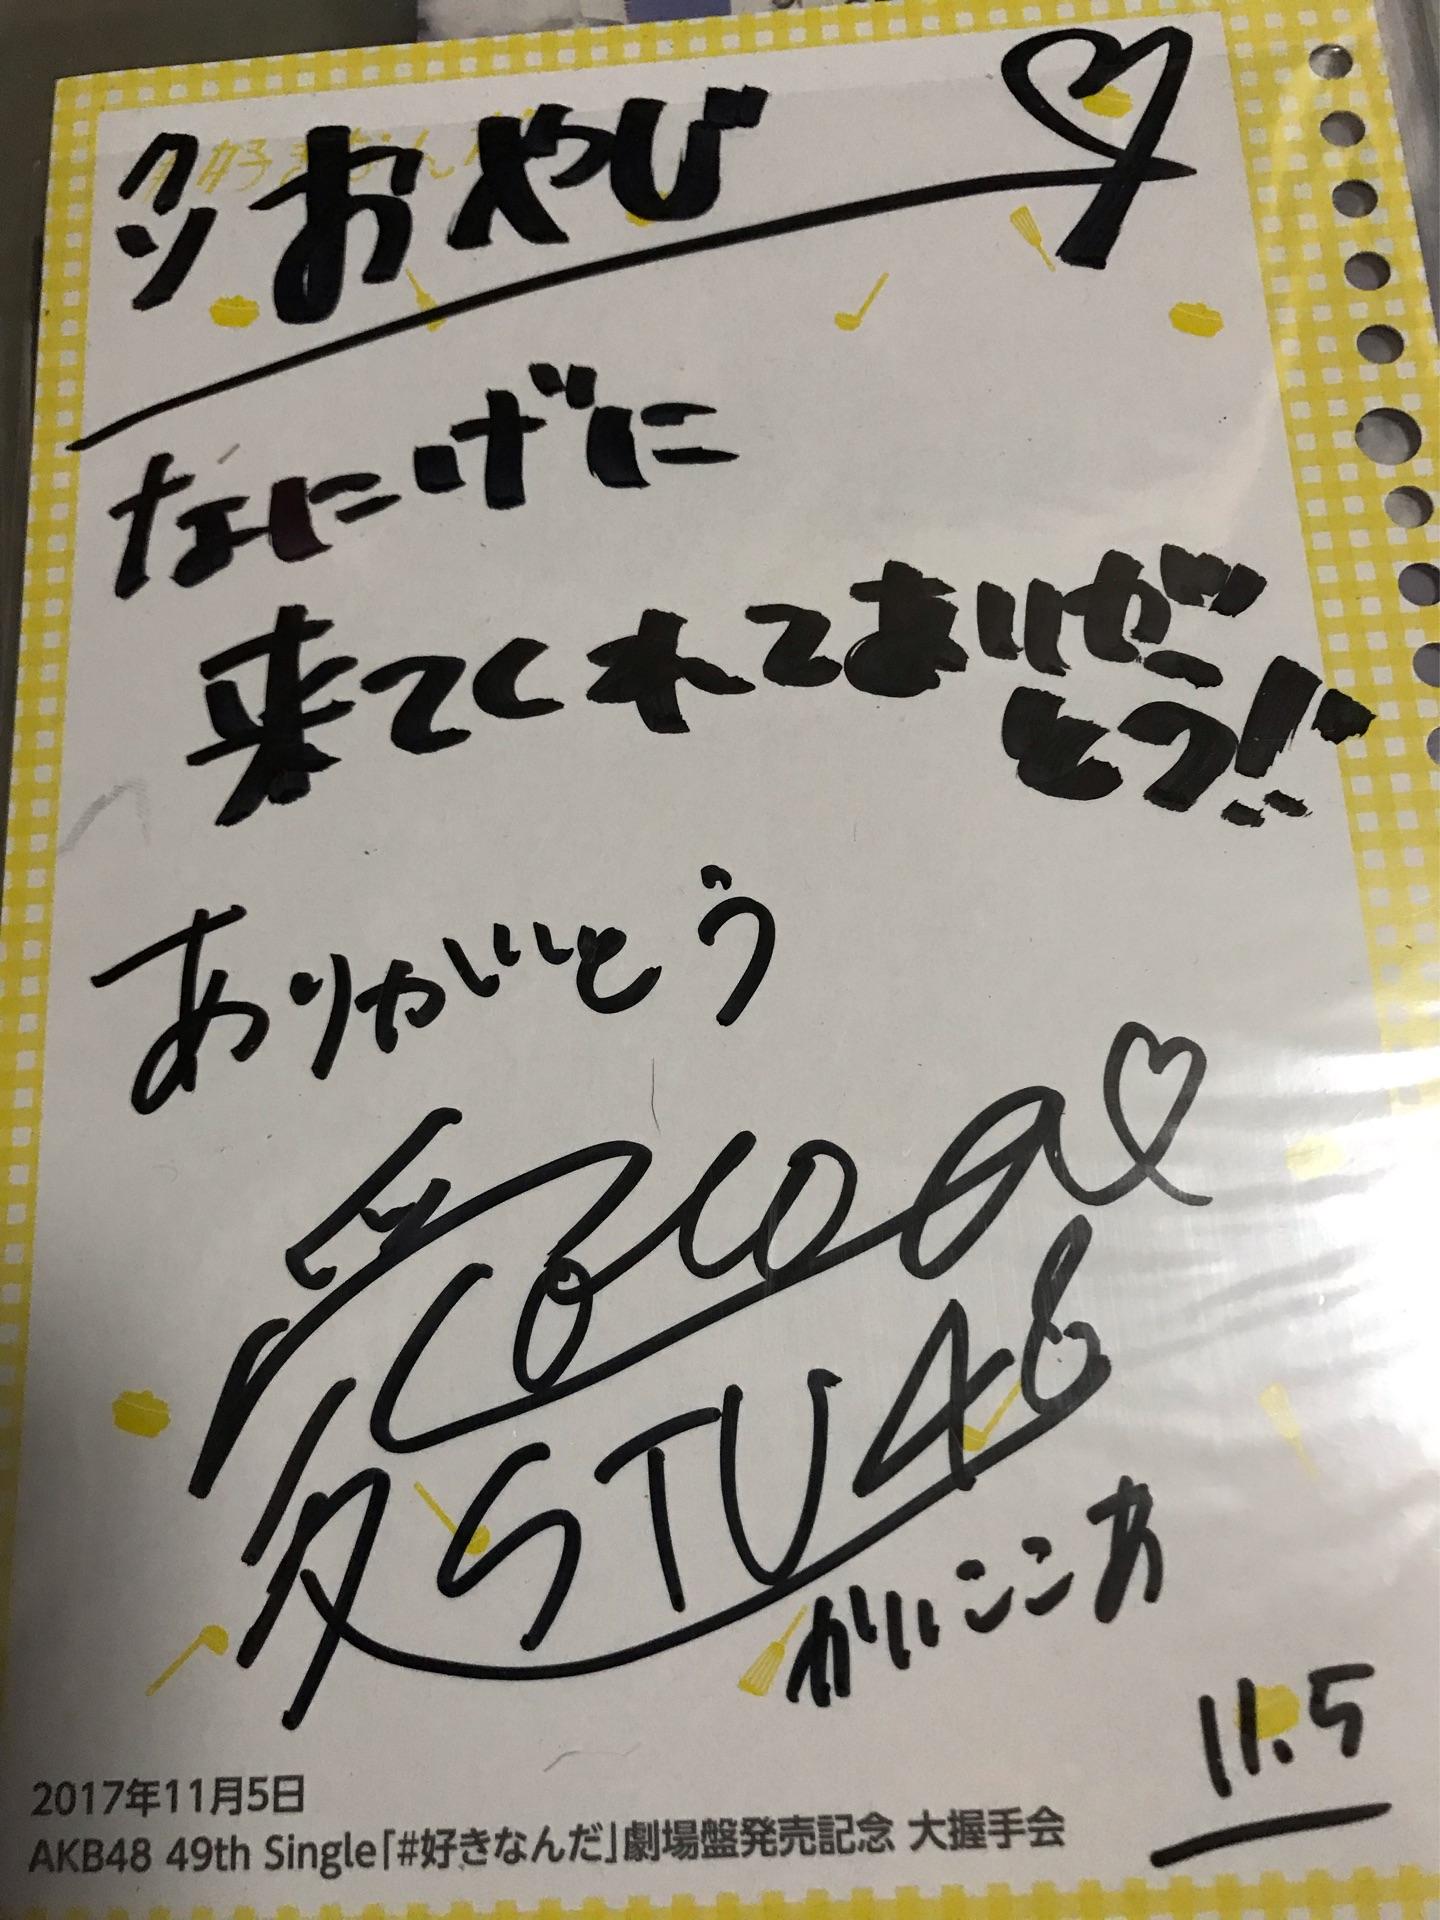 クソおやじ
なにげに
来てくれてありがとう!!
ありがとう
cocoa
STU48
かいここあ
11.5
2017年11月5日
AKB48 49th Single「#好きなんだ」劇場盤発売記念 大握手会